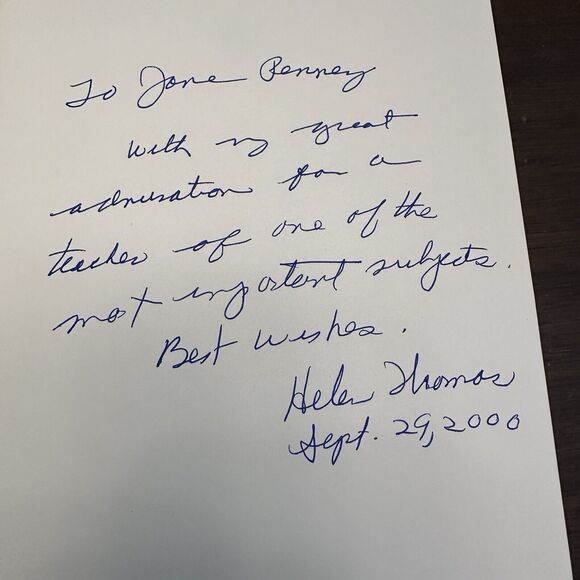 To Jane Penney
With my great
admiration for a
teacher of one of the
most important subjects.
Best wishes.
Helen Thomas
Sept. 29, 2000